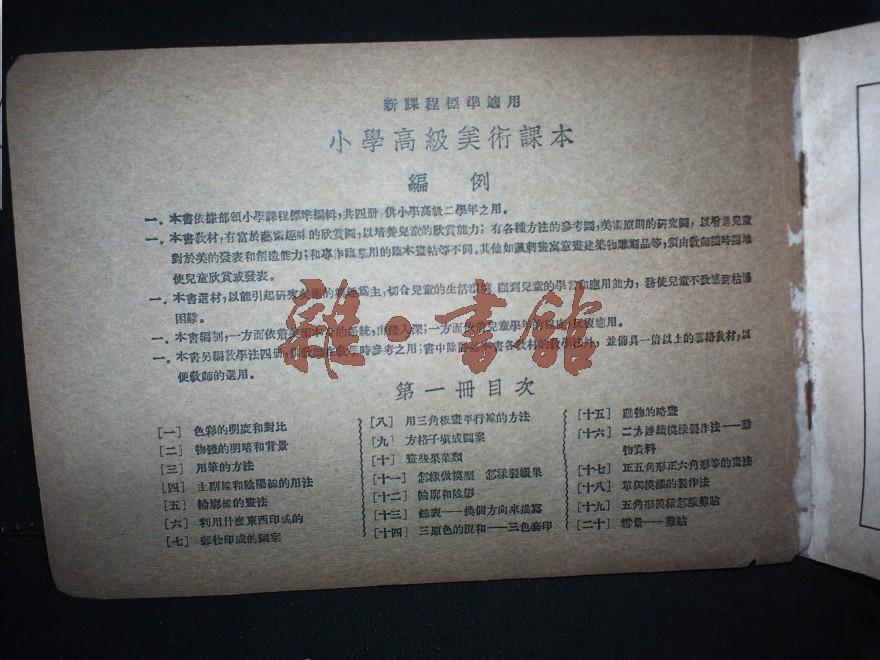 新課程標準適用
小學高級美術課本
編例
一．本書依據部頒小學課程標準編輯，共四册，供小學高級二學年之用。
一．本書教材，有富於藝術趣味的欣賞圖，以培養兒童的欣賞能力；有各種方法的參考圖，美術原則的研究圖，以增進兒童
對於美的發表和創造能力；和專作臨摹用的臨本畫帖等不同。其他如諷刺畫寓意畫建築物雕刻品等，須由教師隨時隨地
使兒童欣賞或發表。
一．本書選材，以能引起研究美術的興趣爲主，切合兒童的生活環境 顧到兒童的學習和應用能力，務使兒童不致感到枯燥
困難。
一．本書編制，一方面依着美術本身的系統，由淺入深；一方面依着兒童學年的程度，反復應用。
一．本書另編教學法四册，供教師在教學時參考之用；書中除詳述本書各教材的教學法外，並備具一倍以上的聯絡教材，以
便敎師的選用。
第一冊目次
[一] 色彩的明度和對比
[二] 物體的明暗和背景
[三] 用筆的方法
[四] 主副線和陰陽線的用法
[五] 輪廓線的畫法
[六] 利用什麽東西印成的
[七] 郵物印成的圖案
[八] 用三角板畫平行線的方法
[九] 方格子填成圖案
[十] 畫些果菜類
[十一] 怎樣做模型 怎樣製蠟果
[十二] 輪廓和陰影
[十三] 鐘表——換個方向來描寫
[十四] 三原色的混和——三色套印
[十五] 動物的略畫
[十六] 二方連續模樣製作法——動
物資料
[十七] 正五角形正六角形等的畫法
[十八] 單獨模樣的製作法
[十九] 五角形模樣怎樣剪貼
[二十] 雪景——剪貼
雜·書館